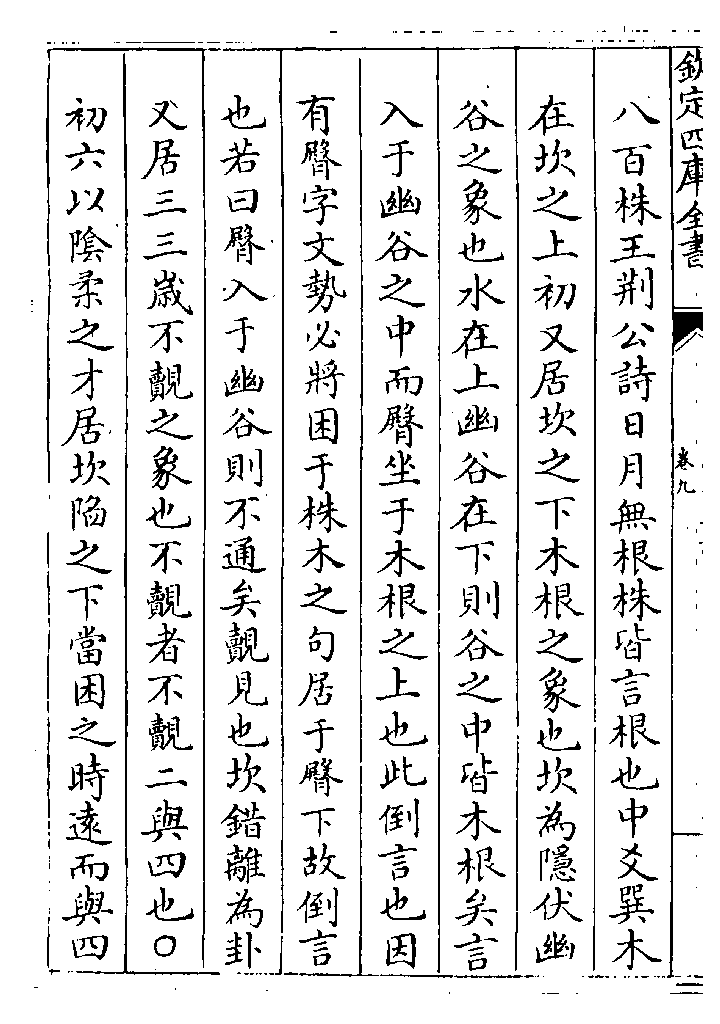 欽定四庫全書
卷九
八百株王荆公詩日月無根株皆言根也中爻巽木
在坎之上初又居坎之下木根之象也坎為隱伏幽
谷之象也水在上幽谷在下則谷之中皆木根矣言
入于幽谷之中而臀坐于木根之上也此倒言也因
有臀字文勢必將困于株木之句居于臀下故倒言
也若曰臀入于幽谷則不通矣覿見也坎錯離為卦
又居三三歲不覿之象也不覿者不覿二與四也〇
初六以陰柔之才居坎陷之下當困之時遠而與四